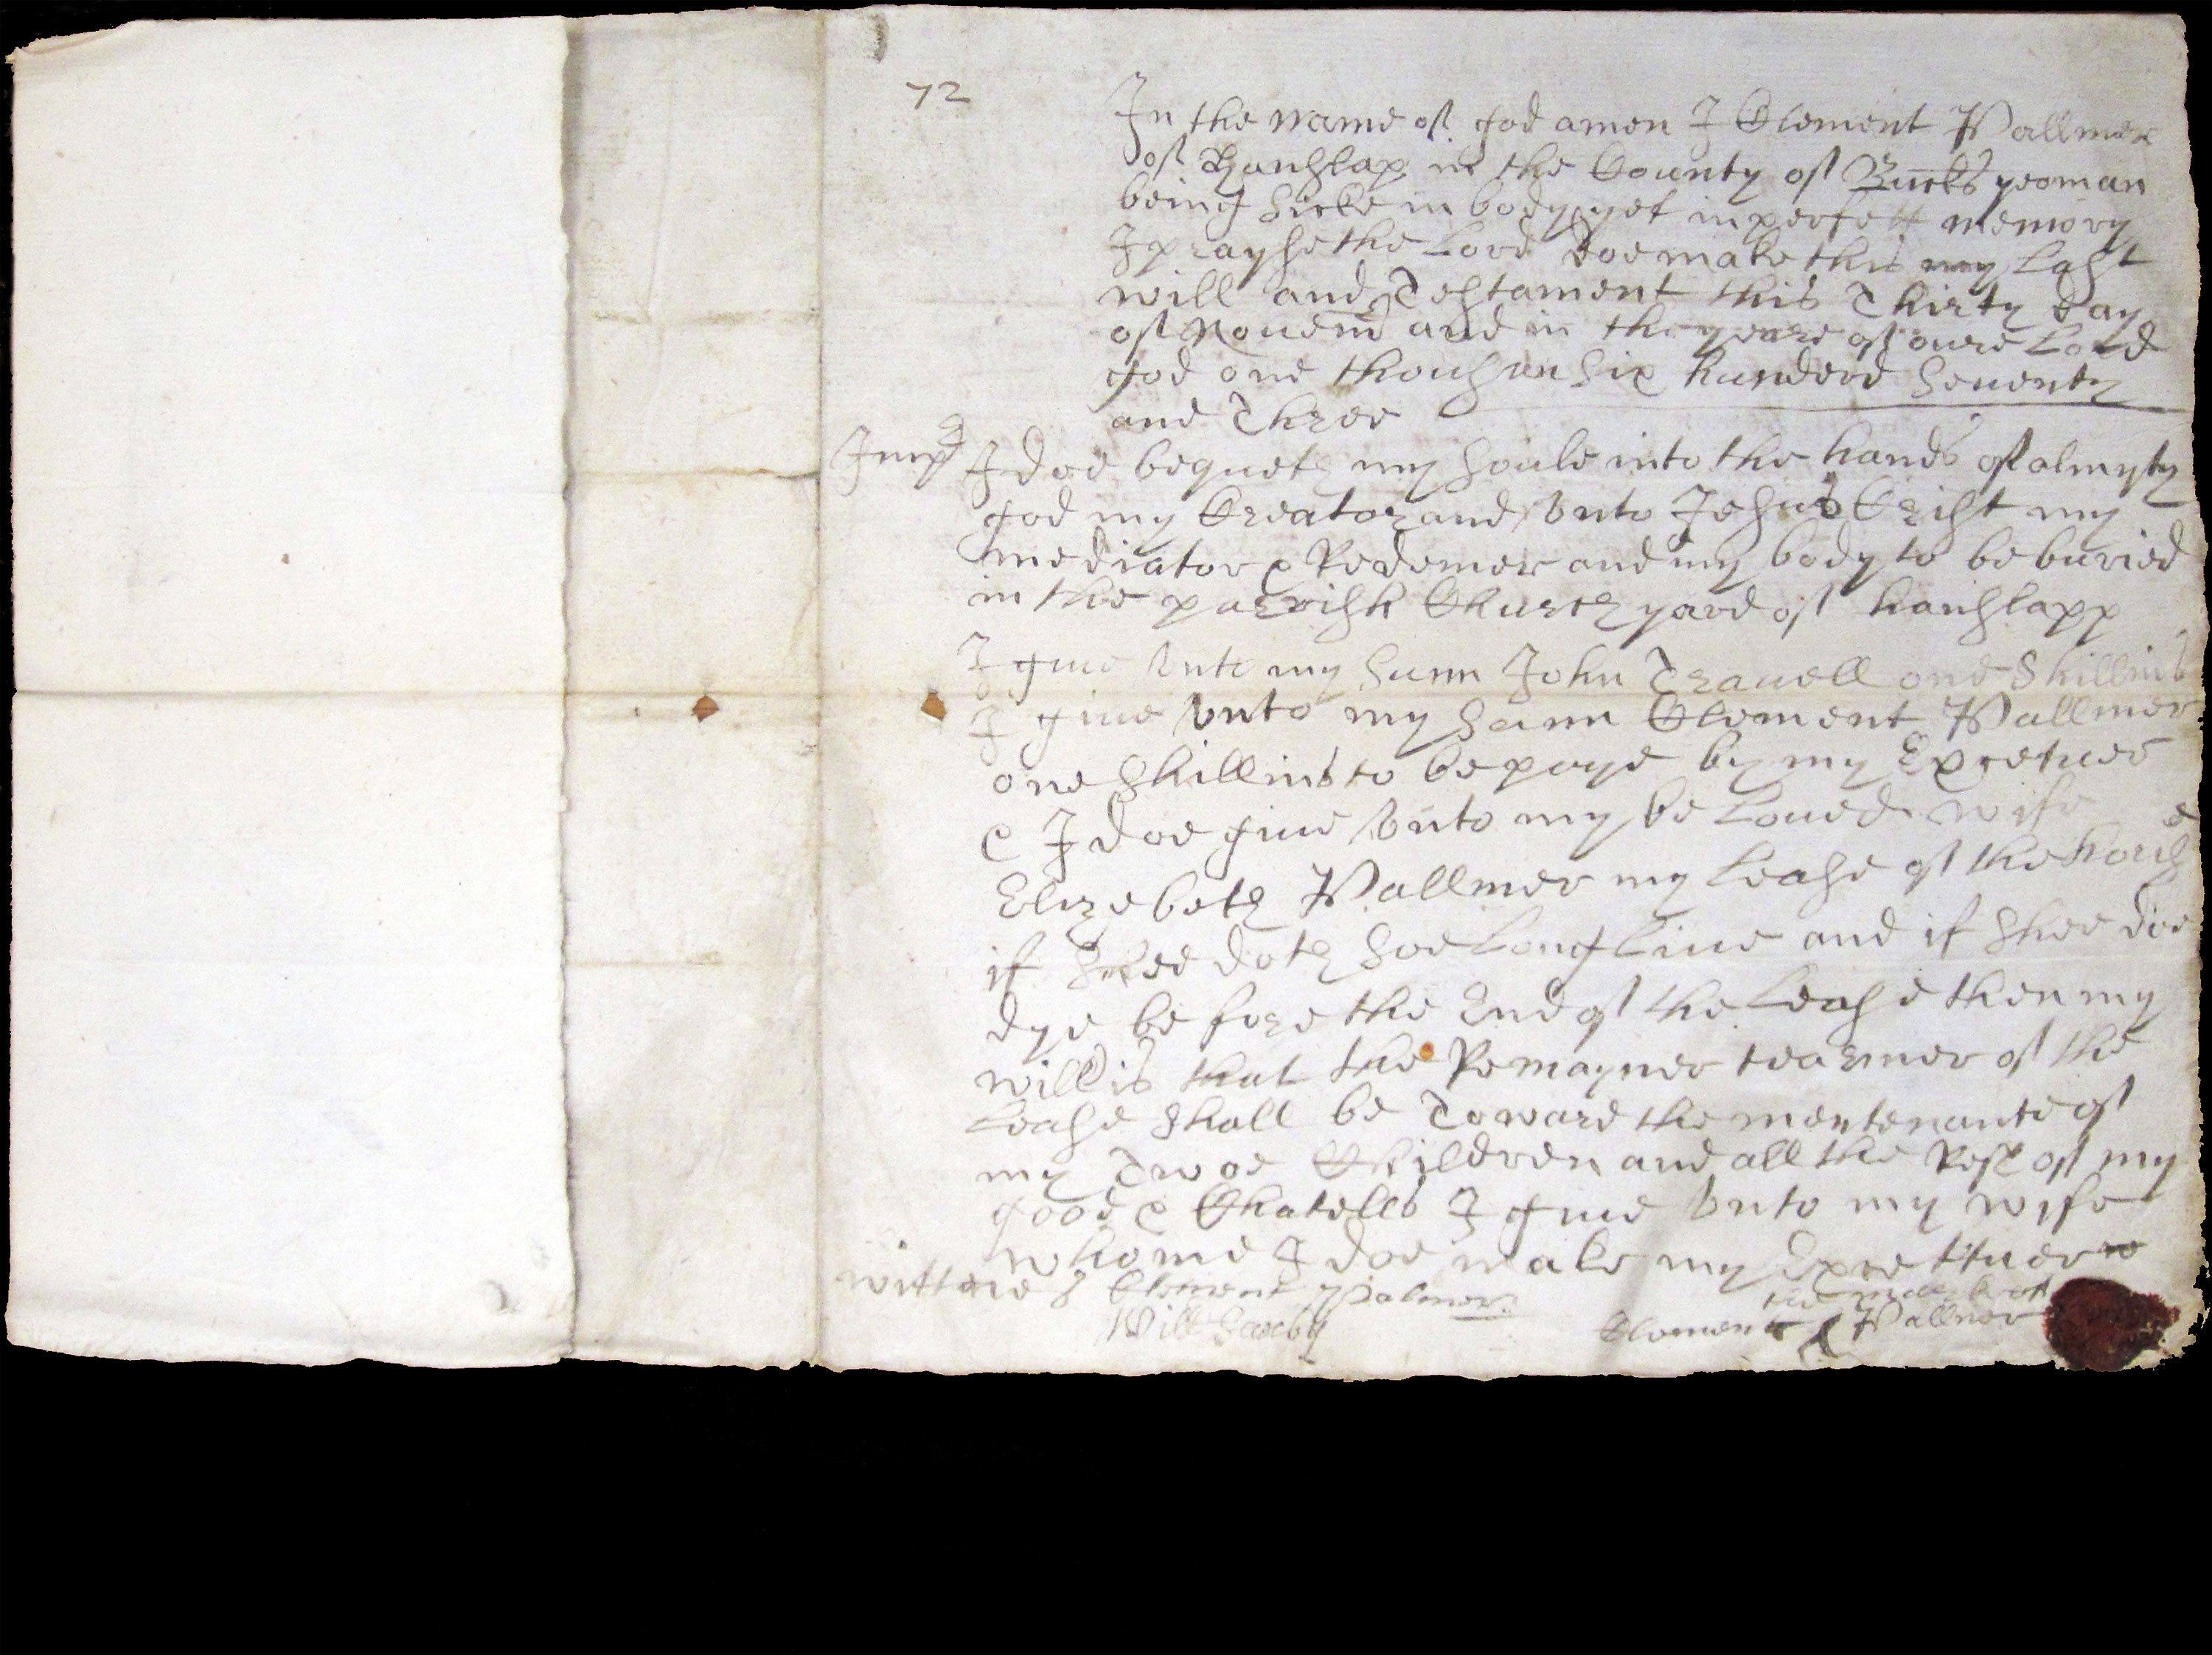 72
In the name of god amen I Clement Pallmer
of Hanslap in the County of Bucks yeoman
being sicke in body yet in perfett memory
I prayse the Lord doe make this my last
will and Testament this Thirty day
of Novem and in the yeare of oure Lord
god one thousan six hunderd seuenty
and Three
Imp I doe bequeth my soule into the hands of almyty
god my Creator and vnto Jesus Crist my
mediator & Redemer and my body to be buried
in the parrish Church yard of hanslapp
I giue vnto my sunn John Trauell one shillins
I giue vnto my sunn Clement Pallmer
one shillins to be paye by my Exsetuer
& I doe giue vnto my be loued wife
Elizebeth Pallmer my lease of the hous e
if shee doth soe long liue and if shee doe
dye be fore the End of the lease then my
will is that the Remayner tearmer of the
lease shall be Toward the mentenante of
my Twoe Children and all the Rest of my
good & Chatells I giue vnto my wife
whome I doe make my
wittnes Clement Palmer
Will Saxby
the marke of
Clement Pallmer